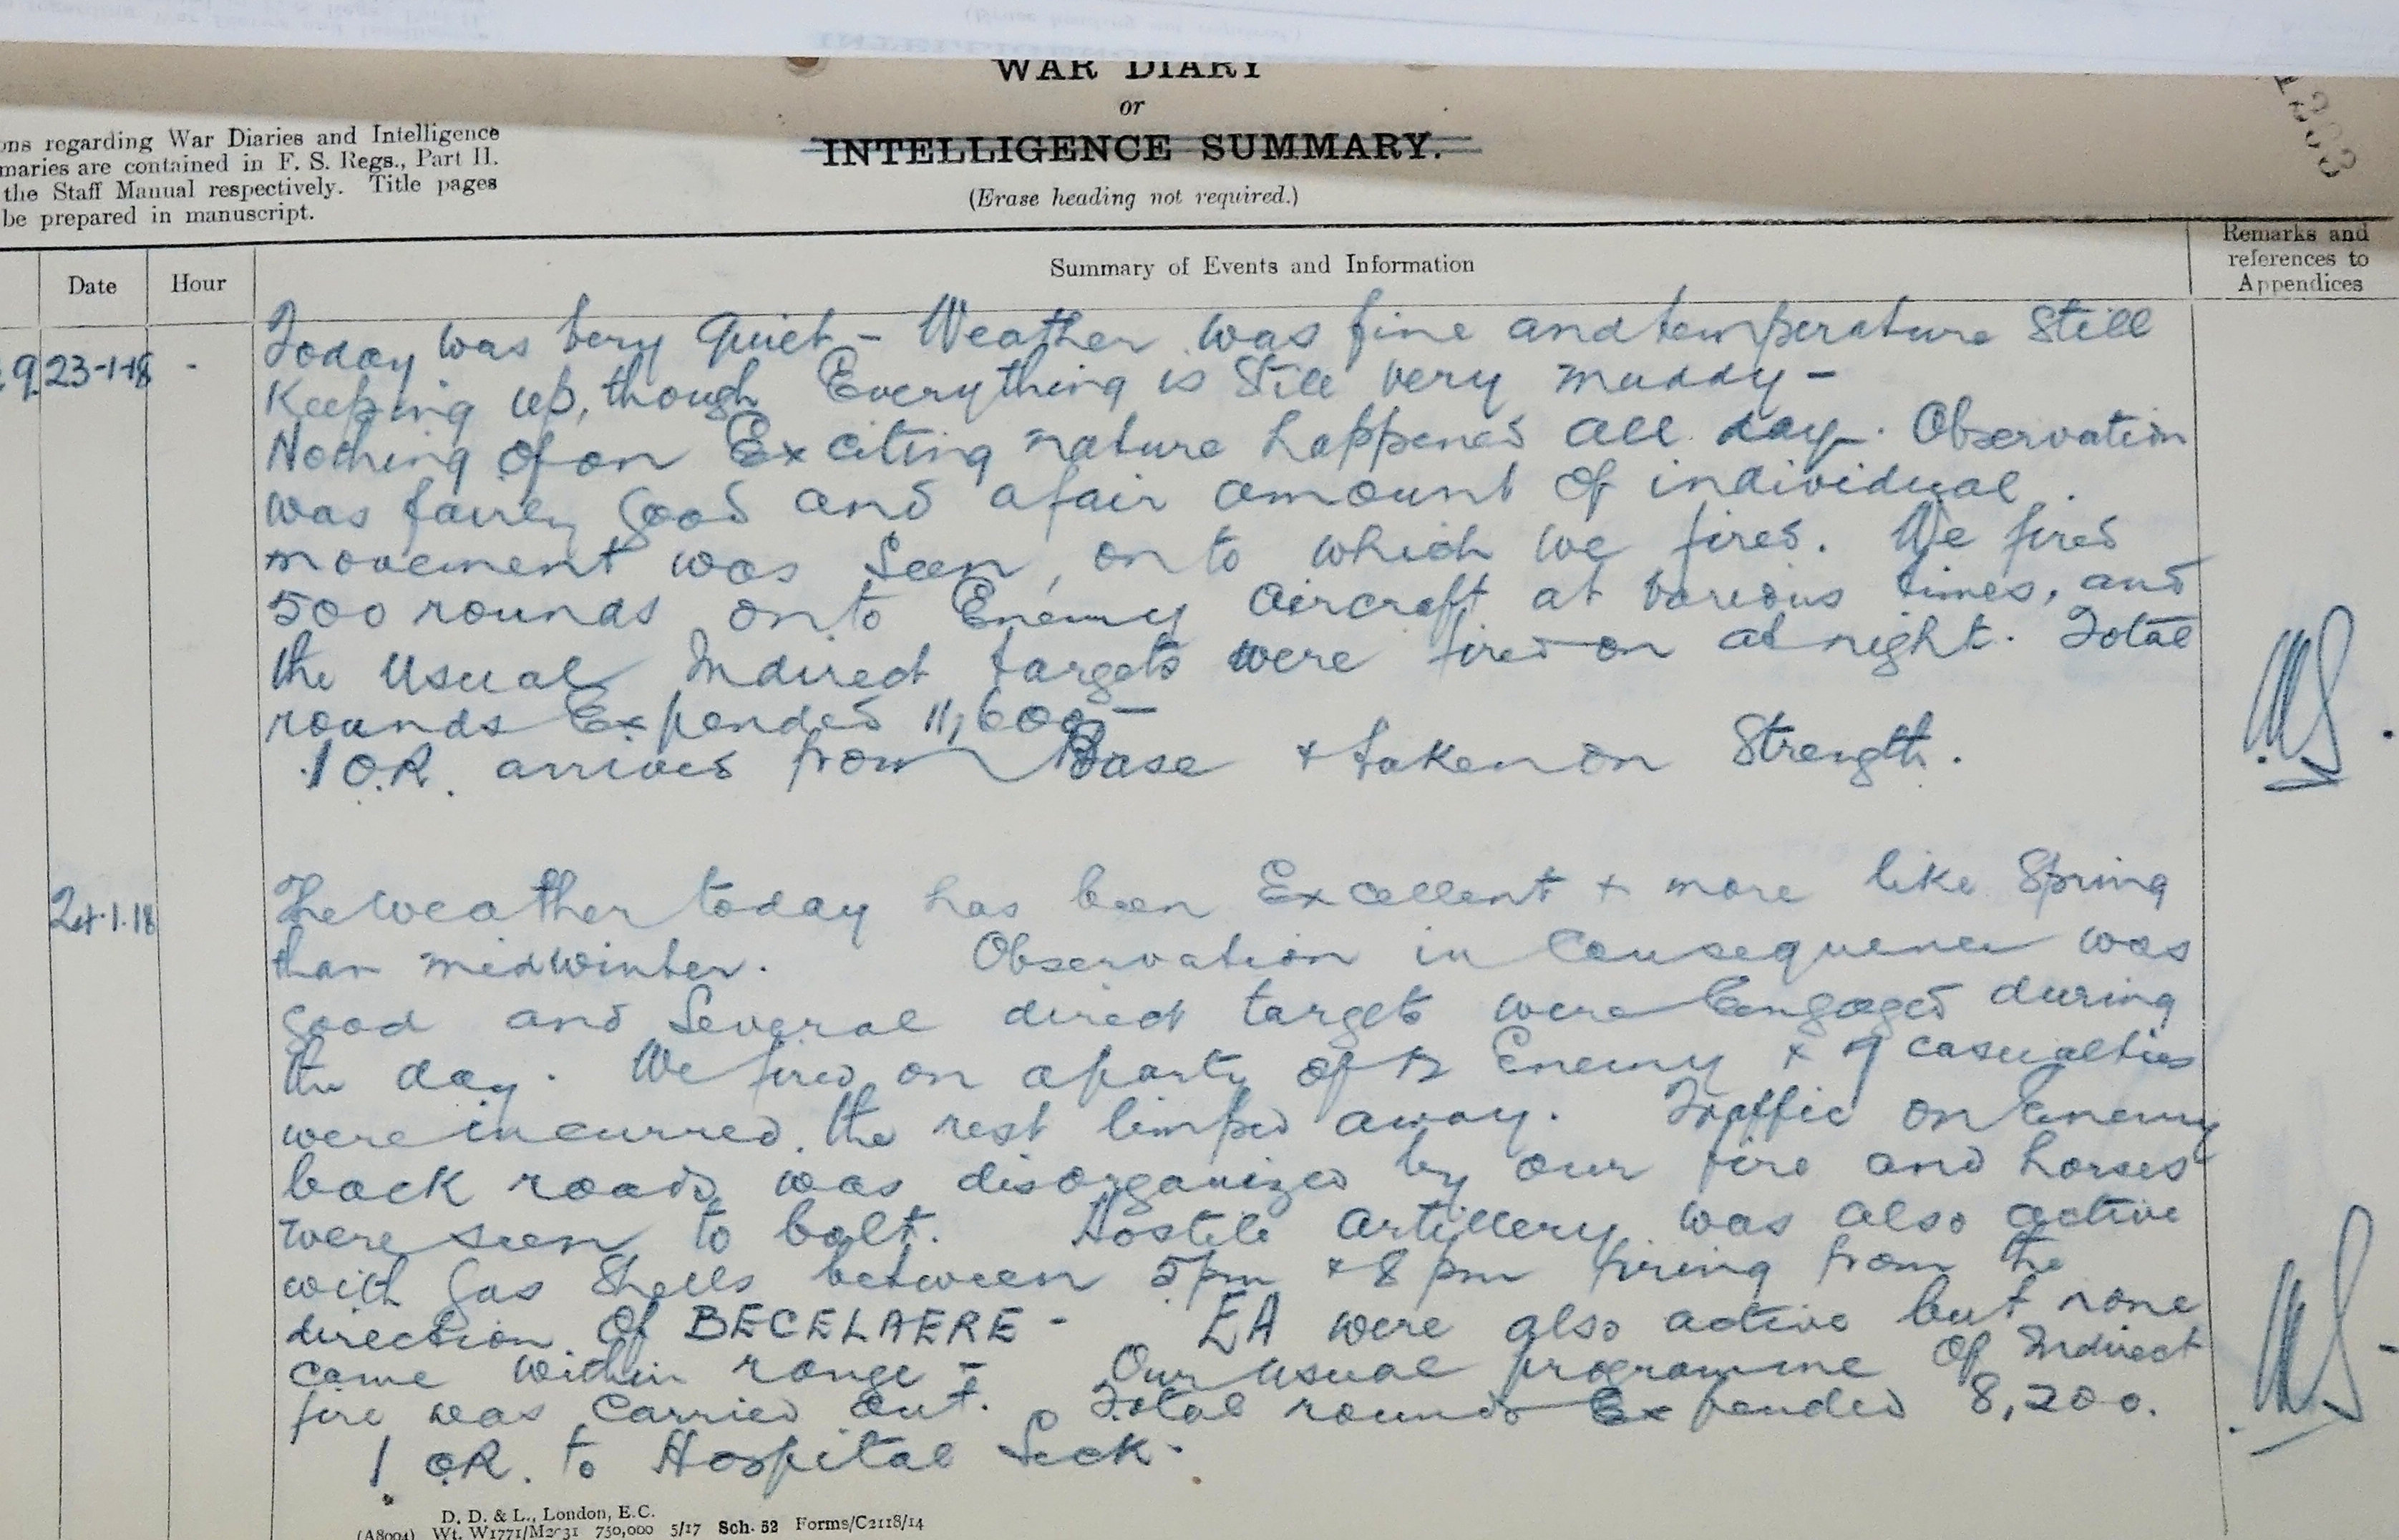 WAR DIARY
or
INTELLIGENCE SUMMARY.
(Erase heading not required.)
1303
ons regarding War Diaries and Intelligence
maries are contained in F. S. Regs., Part II.
the Staff Manual respectively. Title pages
be prepared in manuscript.
Date
Hour
Summary of Events and Information
Remarks and
references to
Appendices
9. 23-1-18 -
Today was very quiet - Weather was fine and temperature still
Keeping up, though Everything is still very muddy -
Nothing of an Exciting nature happened all day. Observation
was fairly good and a fair amount of individual
movement was seen, on to which we fired. We fired
500 rounds onto Enemy Aircraft at various times, and
the usual Indirect targets were fired on at night. Total
rounds Expended 11,600 -
1 O.R. arrived from Base & taken on Strength.
24.1.18
The weather today has been Excellent & more like Spring
than midwinter. Observation in Consequence was
good and Several direct targets were Engaged during
the day. We fired on a party of 12 Enemy & 9 casualties
were incurred, the rest limped away. Traffic on Enemy
back roads was disorganized by our fire and horses
were seen to bolt. Hostile artillery was also active
with Gas Shells between 5pm & 8pm firing from the
direction of BECELAERE - EA were also active but none
came within range - Our usual programme of Indirect
fire was Carried out. Total rounds Expended 8,200.
1 O.R. to Hospital Sick.
D. D. & L., London, E.C.
(A8004) Wt. W1771/M2031 750,000 5/17 Sch. 52 Forms/C2118/14